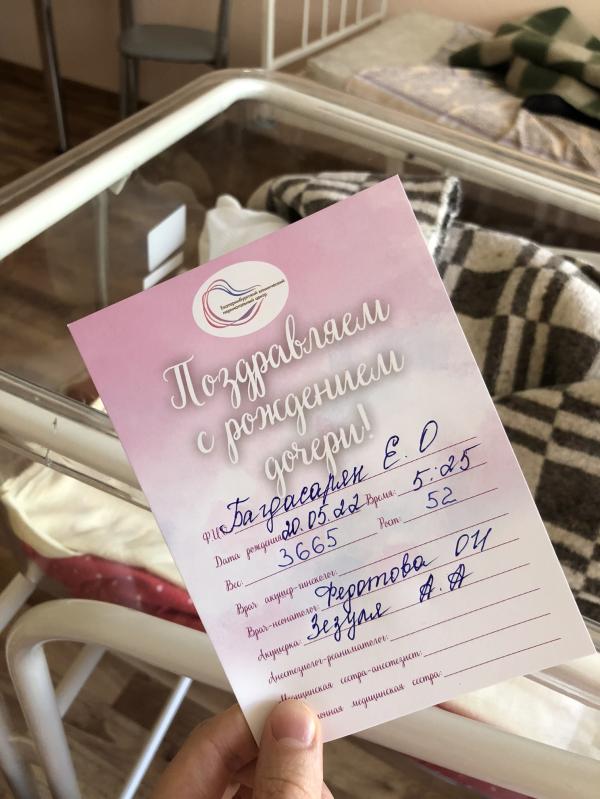 Екатеринбургский клинический
перинатальный центр
Поздравляем
с рождением
дочери!
ФИО Багдасарян Е. О
Дата рождения: 20.05.22 Время: 5:25
Вес: 3665 Рост: 52
Врач акушер-гинеколог:
Врач-неонатолог: Федотова ОИ
Акушерка: Зезуля А. А
Анестезиолог-реаниматолог:
Медицинская сестра-анестезист:
медицинская сестра: